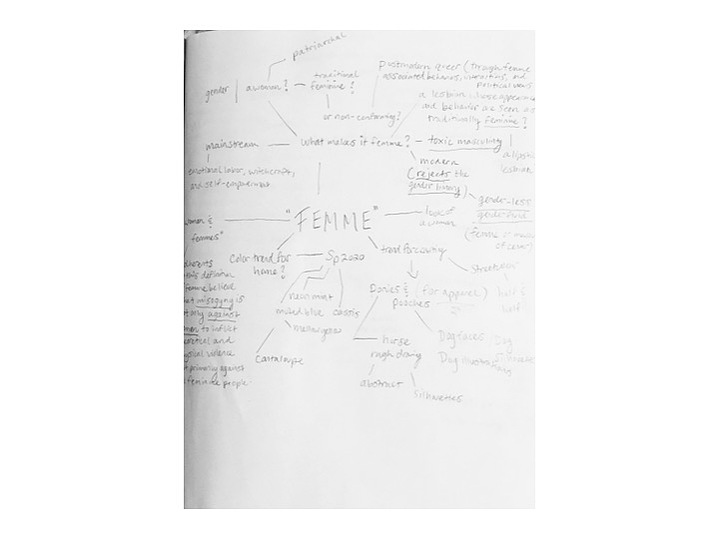 patriarchal
gender
a woman?
traditional
feminine?
or non-conforming?
postmodern queer (through femme
associated behavior, and
political views
a lesbian whose appearance
and behavior are seen as
traditionally feminine?
mainstream
What makes it femme?
toxic masculinity
lesbian
emotional labor, witchcraft,
and self-empowerment
modern
(rejects the
gender binary)
gender-less
gender-fluid
(femme or
women &
femmes"
"FEMME"
look of
a woman
Color trend for
home?
Sp 2020
trend forecasting
streetwear
this definition
femme believe
that misogyny is
not only against
women to inflict
and
physical violence
primarily against
feminine people.
neo mint
blue
cassis
mellow yellow
Cantaloupe
Dories &
pooches
(for apparel)
half &
half
horse
rough drawing
abstract
silhouettes
Dog faces
Dog
Dog illustrations